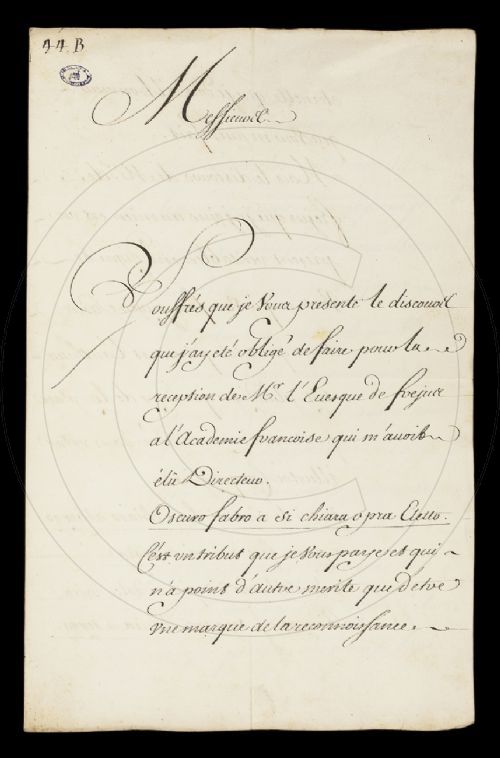 44 B
Messieurs
Souffrés que je vous presente le discours
que j'ay eté obligé de faire pour la
reception de Mr. l'Euesque de frejus
a l'Academie francoise qui m'auoit
élû Directeur.
Oscuro fabro a si chiara opra Eletto.
C'est un tribut que je vous paye et qui
n'a point d'autre merite que d'etre
vne marque de la reconnoissance.